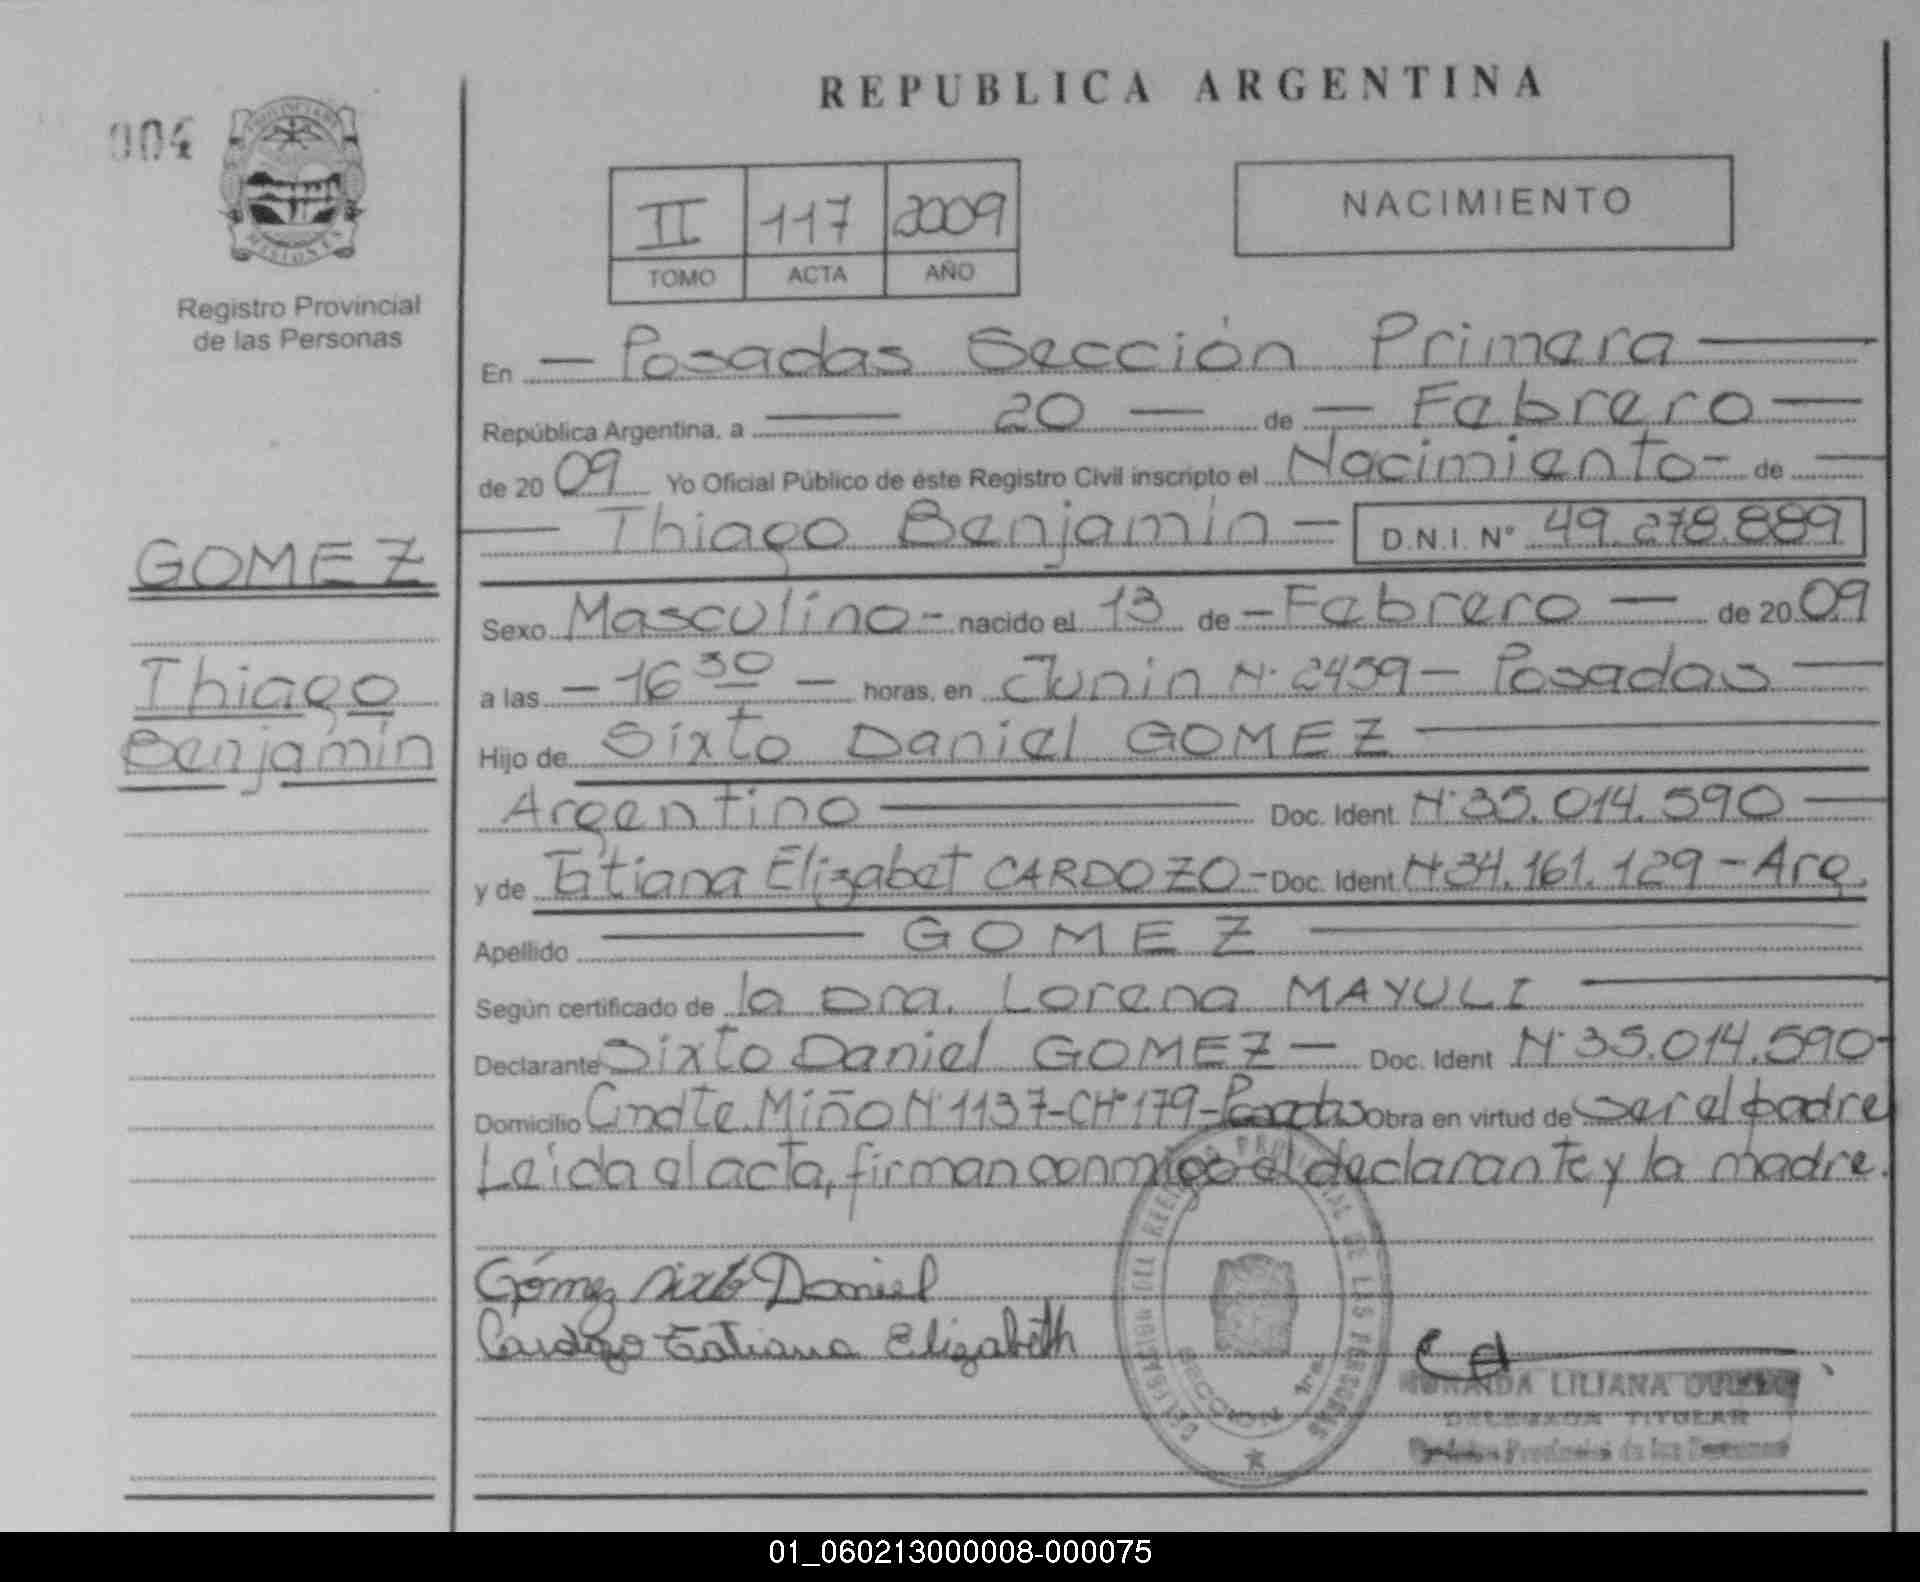 REPUBLICA ARGENTINA
004
PROVINCIA DE MISIONES
Registro Provincial
de las Personas
II 117 2009
TOMO ACTA AÑO
NACIMIENTO
En — Posadas Sección Primera —
República Argentina, a — 20 — de — Febrero —
de 2009 Yo Oficial Público de éste Registro Civil inscripto el Nacimiento - de —
— Thiago Benjamín — D.N.I. Nº 49.278.889
GOMEZ
Thiago
Benjamín
Sexo Masculino - nacido el 13 de — Febrero — de 2009
a las — 16 30 — horas, en Junin Nº 2459 — Posadas —
Hijo de Sixto Daniel GOMEZ —
Argentino — Doc. Ident Nº 35.014.590 —
y de Tatiana Elizabet CARDOZO - Doc. Ident Nº 34.161.129 - Arg.
Apellido — GOMEZ —
Según certificado de la Dra. Lorena MAYULI —
Declarante Sixto Daniel GOMEZ — Doc. Ident Nº 35.014.590 -
Domicilio Cndte. Miño Nº 1137-CHº 179-Posadas Obra en virtud de ser el padre
Leida el acta, firman conmigo el declarante y la madre.
Gómez Sixto Daniel
Cardozo Tatiana Elizabeth
DELEGACION DEL REGISTRO PROVINCIAL DE LAS PERSONAS
SECCION 1ra.
LILIANA
DELEGADA TITULAR
Provincial de las Personas
01_060213000008-000075